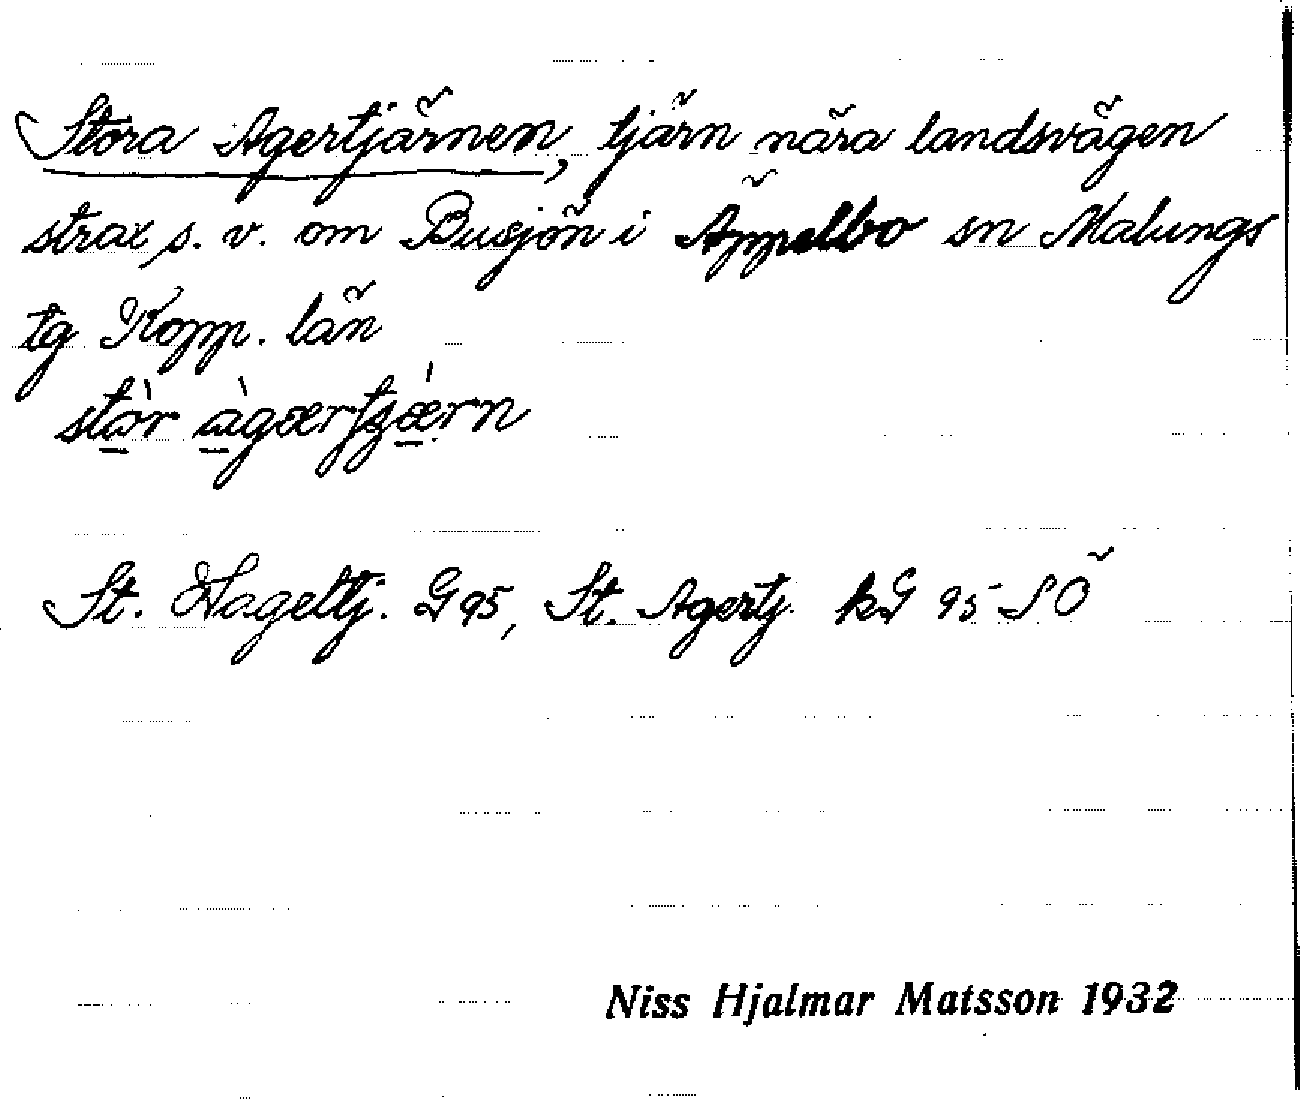 Stora Agertjärnen, tjärn nära landsvägen
strax s. v. om Busjön i Äppelbo sn Malungs
tg Kopp. län
stòr àgærtʒǽrn
St. Hageltj. G 95, St. Agertj. kG 95 SÖ
Niss Hjalmar Matsson 1932